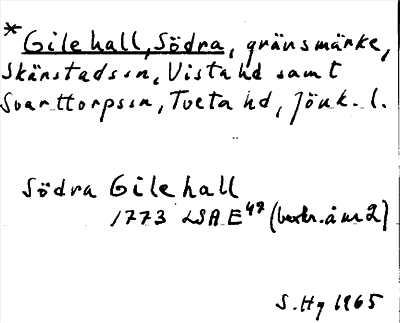 * Gilehall, Södra, gränsmärke,
Skärstadssn, Vista hd samt
Svarttorpssn, Tveta hd, Jönk. l.
Södra Gilehall
1773 LSA E47 (beskr. å nr 2)
S. Hg 1965